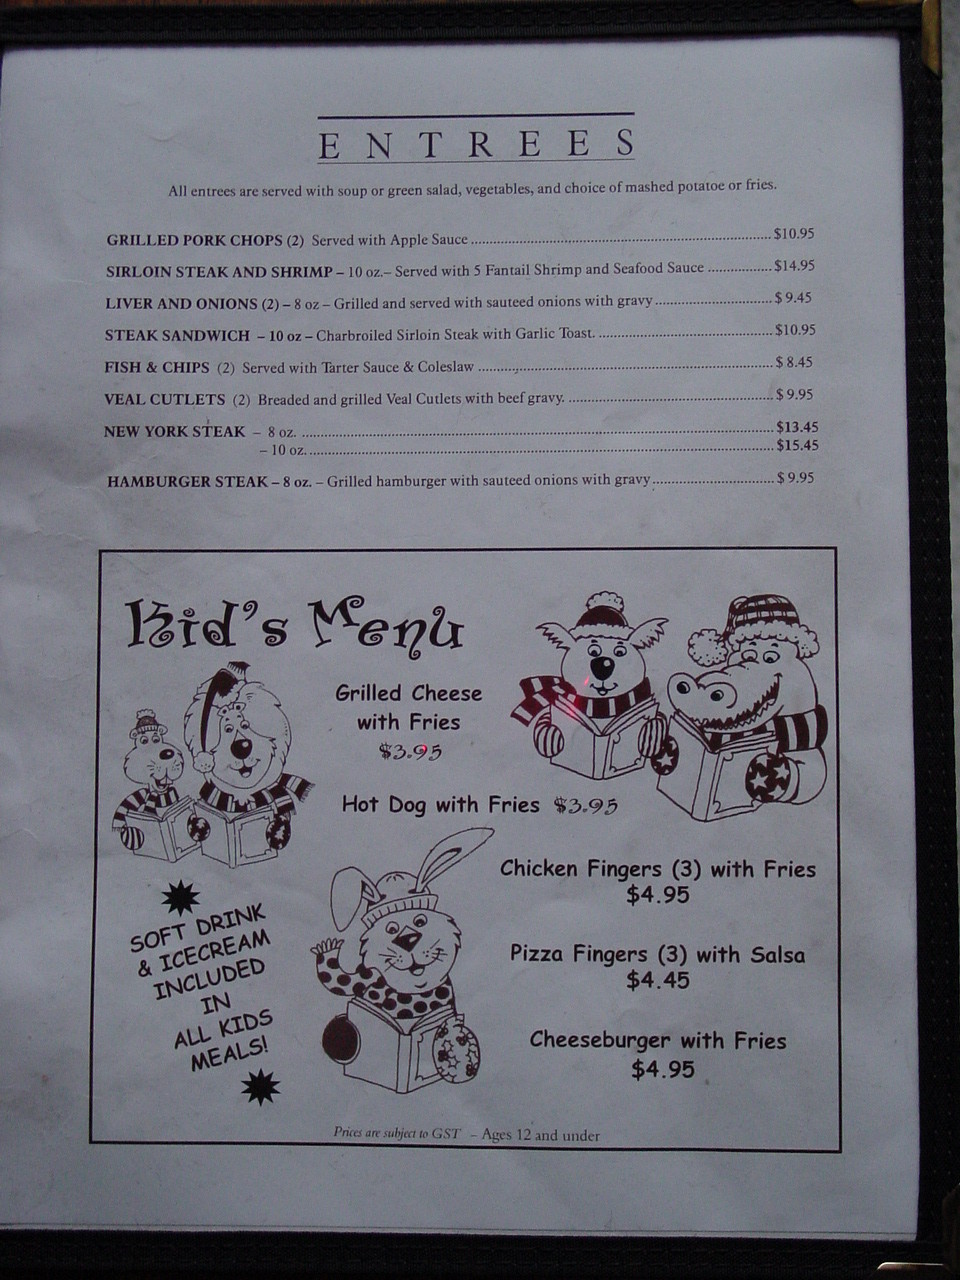 ENTREES
All entrees are served with soup or green salad, vegetables, and choice of mashed potatoe or fries.
GRILLED PORK CHOPS (2) Served with Apple Sauce ........ $10.95
SIRLOIN STEAK AND SHRIMP – 10 oz.– Served with 5 Fantail Shrimp and Seafood Sauce ........ $14.95
LIVER AND ONIONS (2) – 8 oz – Grilled and served with sauteed onions with gravy ........ $ 9.45
STEAK SANDWICH – 10 oz – Charbroiled Sirloin Steak with Garlic Toast. ........ $10.95
FISH & CHIPS (2) Served with Tarter Sauce & Coleslaw ........ $ 8.45
VEAL CUTLETS (2) Breaded and grilled Veal Cutlets with beef gravy. ........ $ 9.95
NEW YORK STEAK – 8 oz. ........ $13.45
– 10 oz. ........ $15.45
HAMBURGER STEAK – 8 oz. – Grilled hamburger with sauteed onions with gravy ........ $ 9.95
Kid's Menu
Grilled Cheese
with Fries
$3.95
Hot Dog with Fries $3.95
Chicken Fingers (3) with Fries
$4.95
Pizza Fingers (3) with Salsa
$4.45
Cheeseburger with Fries
$4.95
SOFT DRINK
& ICECREAM
INCLUDED
IN
ALL KIDS
MEALS!
Prices are subject to GST – Ages 12 and under